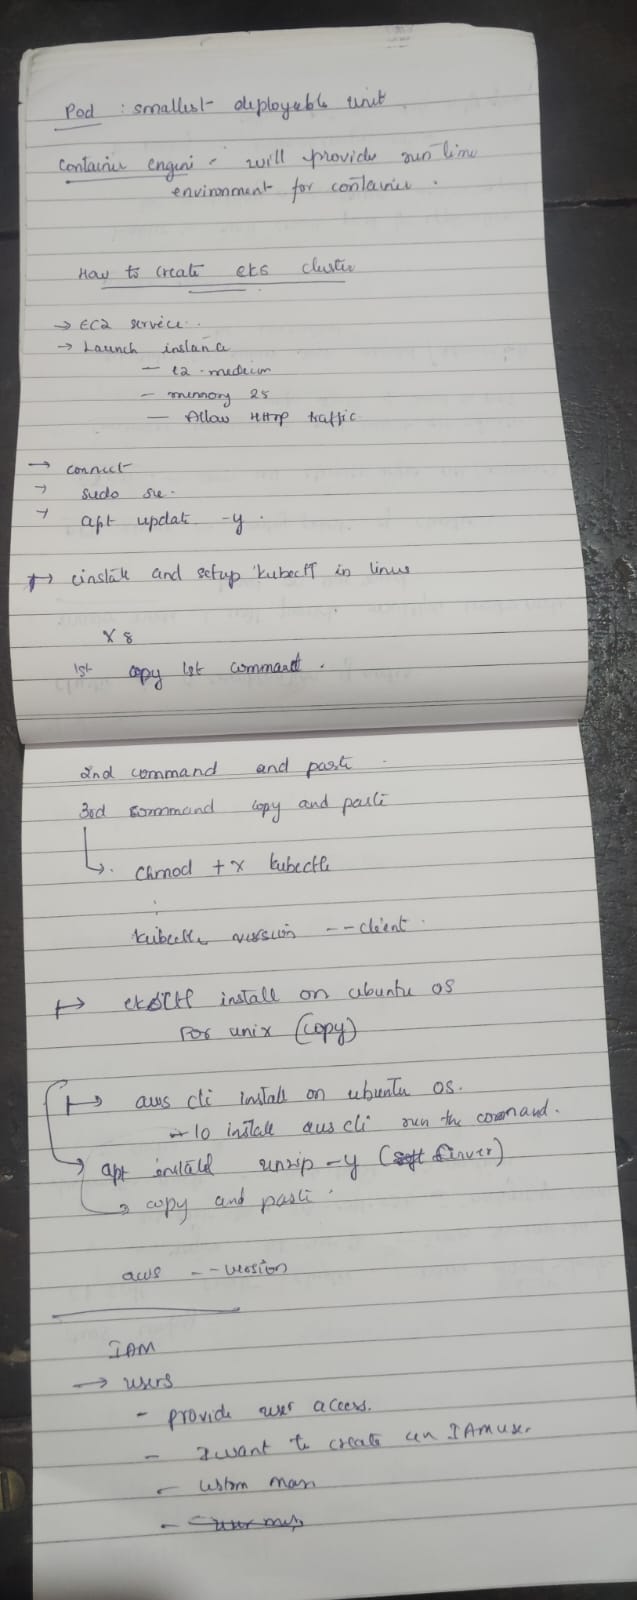 Pod : smallest deployable unit
Container engine - will provide run time
environment for container.
How to create EKS cluster
→ EC2 service.
→ Launch instance
— t2.medium
— memory 25
— Allow HTTP traffic
→ connect
→ sudo su.
→ apt update -y.
→ install and setup kubectl in linux
X 8
1st copy 1st command.
2nd command and paste
3rd command copy and paste
↳ chmod +x kubectl
:
kubectl version --client.
→ eksctl install on ubuntu os
For unix (copy)
→ aws cli install on ubuntu os.
→ To install aws cli run the command.
→ apt install unzip -y (server)
→ copy and paste.
aws --version
IAM
→ users
- provide user access.
- I want to create an IAM user
- custom